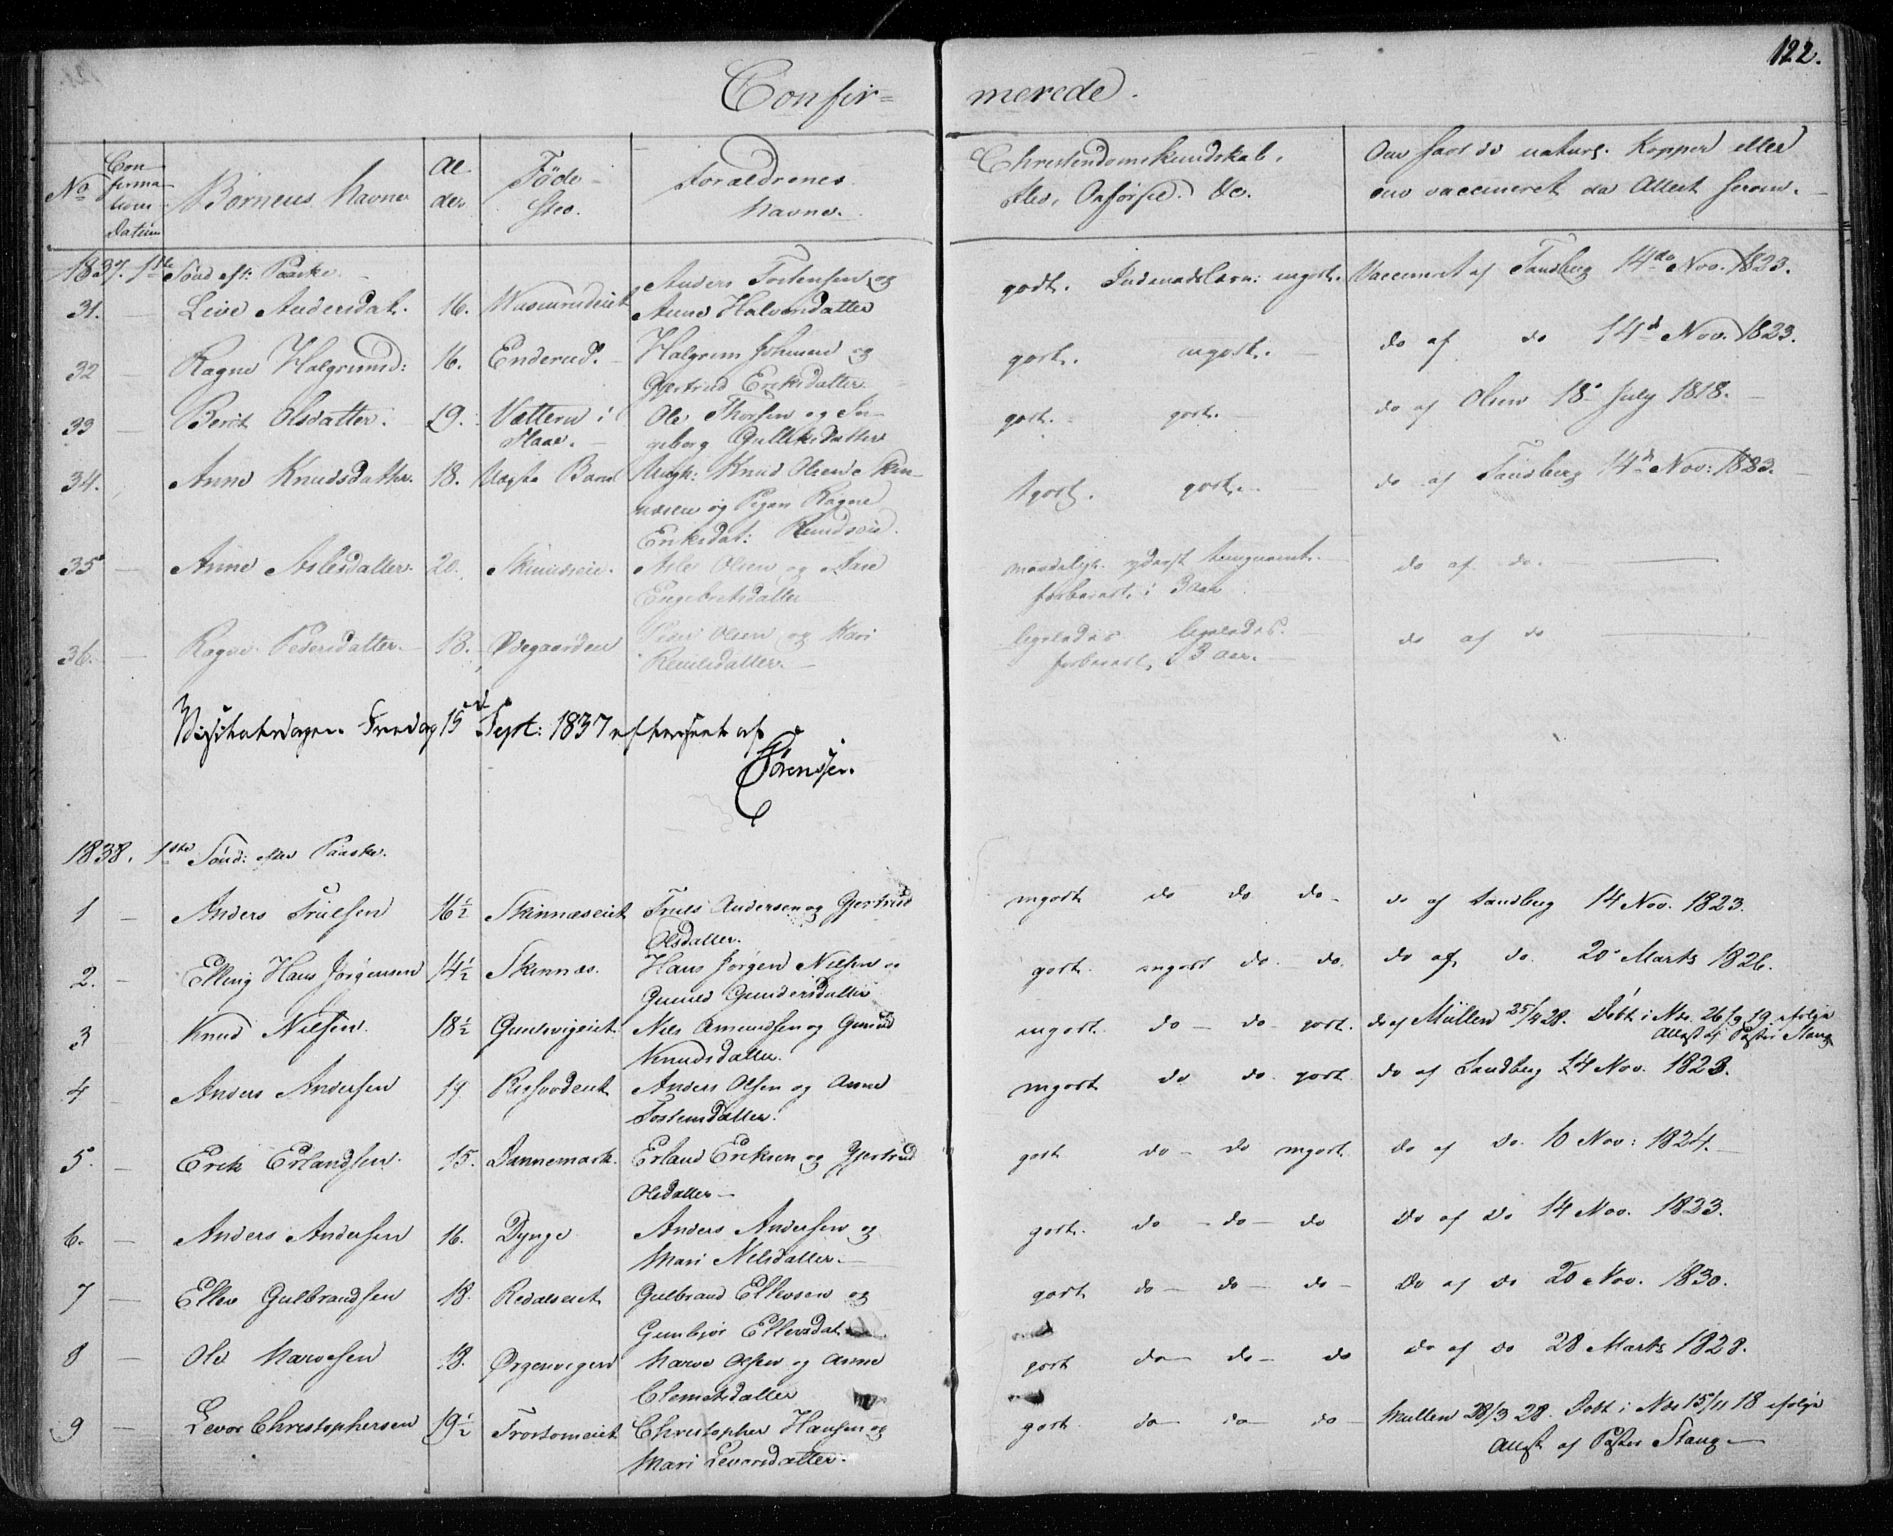 122.
Confir= merede.
No
Con
firma
tions
Datum
Börnenes Navne
Al
der
Föde
Sted.
Forældrenes
Navne.
Christendomskundskab,
Flid, Opförsel. &c.
Om havt de naturl. Kopper eller
om vaccineret da Attest herom.
1837. 1ste Sönd eft: Paaske.
31. Live Andersdat. 16. Anders Tostensen og
Anne Halvorsdatter
godt. mgodt. Vaccineret af Sandberg 14de Nov. 1823.
32 Ragne Halgrimsd: 16. Enderud. Halgrim Johnsen og
Gjertrud Eriksdatter.
godt. mgodt. do af do 14d Nov. 1823.
33 Berit Olsdatter. 19. Vettern i
Flaae.
Ole Thorsen og In-
geborg Gulliksdatter
godt. godt. do af Olsen 18 July 1818.
34. Anne Knudsdatter. 18. Uægte Barn Ungk: Knud Olsen
og Pigen Ragne
Eriksdat:
godt. godt. do af Sandberg 14d Nov: 1823.
35 Anne Aslesdatter. 20. Skinnæseie. Asle Olsen og
Engebretsdatter
maadelig. yderst
forberedt i 3 Aar
do af do.
36. Ragne Pedersdatter. 18. Ødegaarden Peder Olsen og Kari
ligeledes ligeledes.
forberedt 3 Aar.
do af do
Visitatsdagen Fredag 15d Sept: 1837 efterseet af
Sörenssen.
1838. 1ste Sönd: efter Paaske.
1 Anders Trulsen 16½ Skinnæseiet Truls Andersen og Gjertrud
Olsdatter.
mgodt do do do do af Sandberg 14 Nov. 1823.
2. Elling Hans Jörgensen 14½ Skinnæs. Hans Jörgen Nielsen og
Gunild Gundersdatter
godt. mgodt do. do. do af do. 20 Marts 1826.
3 Knud Nilsen. 18½ Gulsvigeiet Nils Amundsen og Gunild
Knudsdatter.
mgodt do do godt. do af Müller 25/4 28. Döbt i Næs 26/9 19 ifölge
Attest af Pastor Stang
4 Anders Andersen 19. Anders Olsen og Anne
Tostensdatter.
mgodt do do godt. do af Sandberg 14 Nov. 1823.
5. Erik Erlandsen. 15. Dannemark. Erland Eriksen og Gjertrud
Olsdatter
godt do do mgodt do af do. 10 Nov: 1824.
6. Anders Andersen 16. Dynge Anders Andersen og
Mari Nilsdatter.
godt. do do do do af do 14 Nov. 1823.
7 Ellev Gulbrandsen 18. Gulbrand Ellevsen og
Gunbjör Ellevsdat.
godt do do do do af do 20 Nov. 1830.
8 Ole Narvesen 18. Ørgenvigen Narve Olsen og Anne
Clemetsdatter
godt do do do do af do 28 Marts 1828.
9 Levor Christophersen 19½ Trostemeiet Christopher Hansen og
Mari Levorsdatter.
godt do do do Müller 28/3 28. Döbt i Næs 15/11 18 ifölge
Attest af Pastor Stang